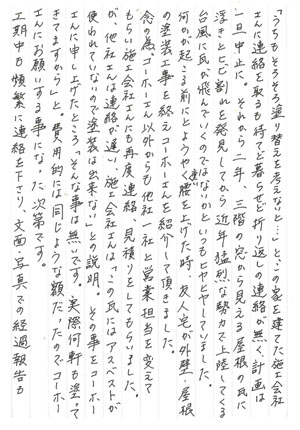 「うちもそろそろ塗り替えを考えないと…」と、この家を建てた施工会社
さんに連絡を取るも待てど暮らせど折り返しの連絡が無く、計画は
一旦中止に。それから二年、三階の窓から見える屋根の瓦に
浮きとヒビ割れを発見してから近年猛烈な勢力で上陸してくる
台風に瓦が飛んでいくのではないかといつもヒヤヒヤしていました。
何かが起こる前にとようやく重い腰を上げた時、友人宅が外壁・屋根
の塗装工事を終えコーホーさんを紹介して頂きました。
念の為、コーホーさん以外からも他社一社と営業担当を変えて
もらい施工会社さんにも再度連絡、見積りをしてもらいました。
が、他社さんは連絡が遅い、施工会社さんは「この瓦にはアスベストが
使われていないので塗装は出来ない」との説明。その事をコーホー
さんに申し上げたところ、「そんな事は無いです。実際何軒も塗って
きてますから」と。費用的には同じような額だったのでコーホー
さんにお願いする事になった次第です。
工期中も頻繁に連絡を下さり、文面、写真での経過報告も